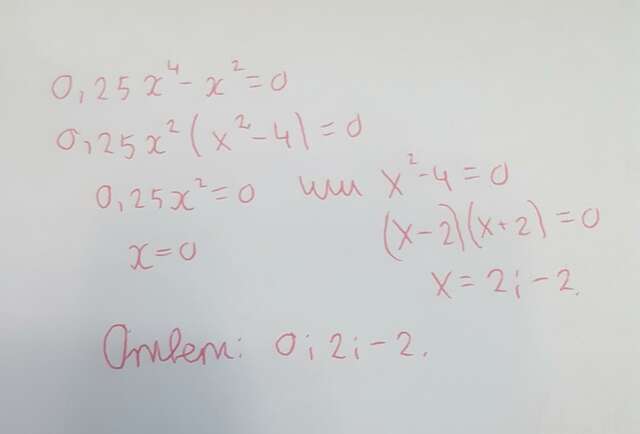 0,25x⁴ - x² = 0
0,25x² (x² - 4) = 0
0,25x² = 0 или x² - 4 = 0
x = 0 (x - 2)(x + 2) = 0
x = 2; -2.
Ответ: 0; 2; -2.